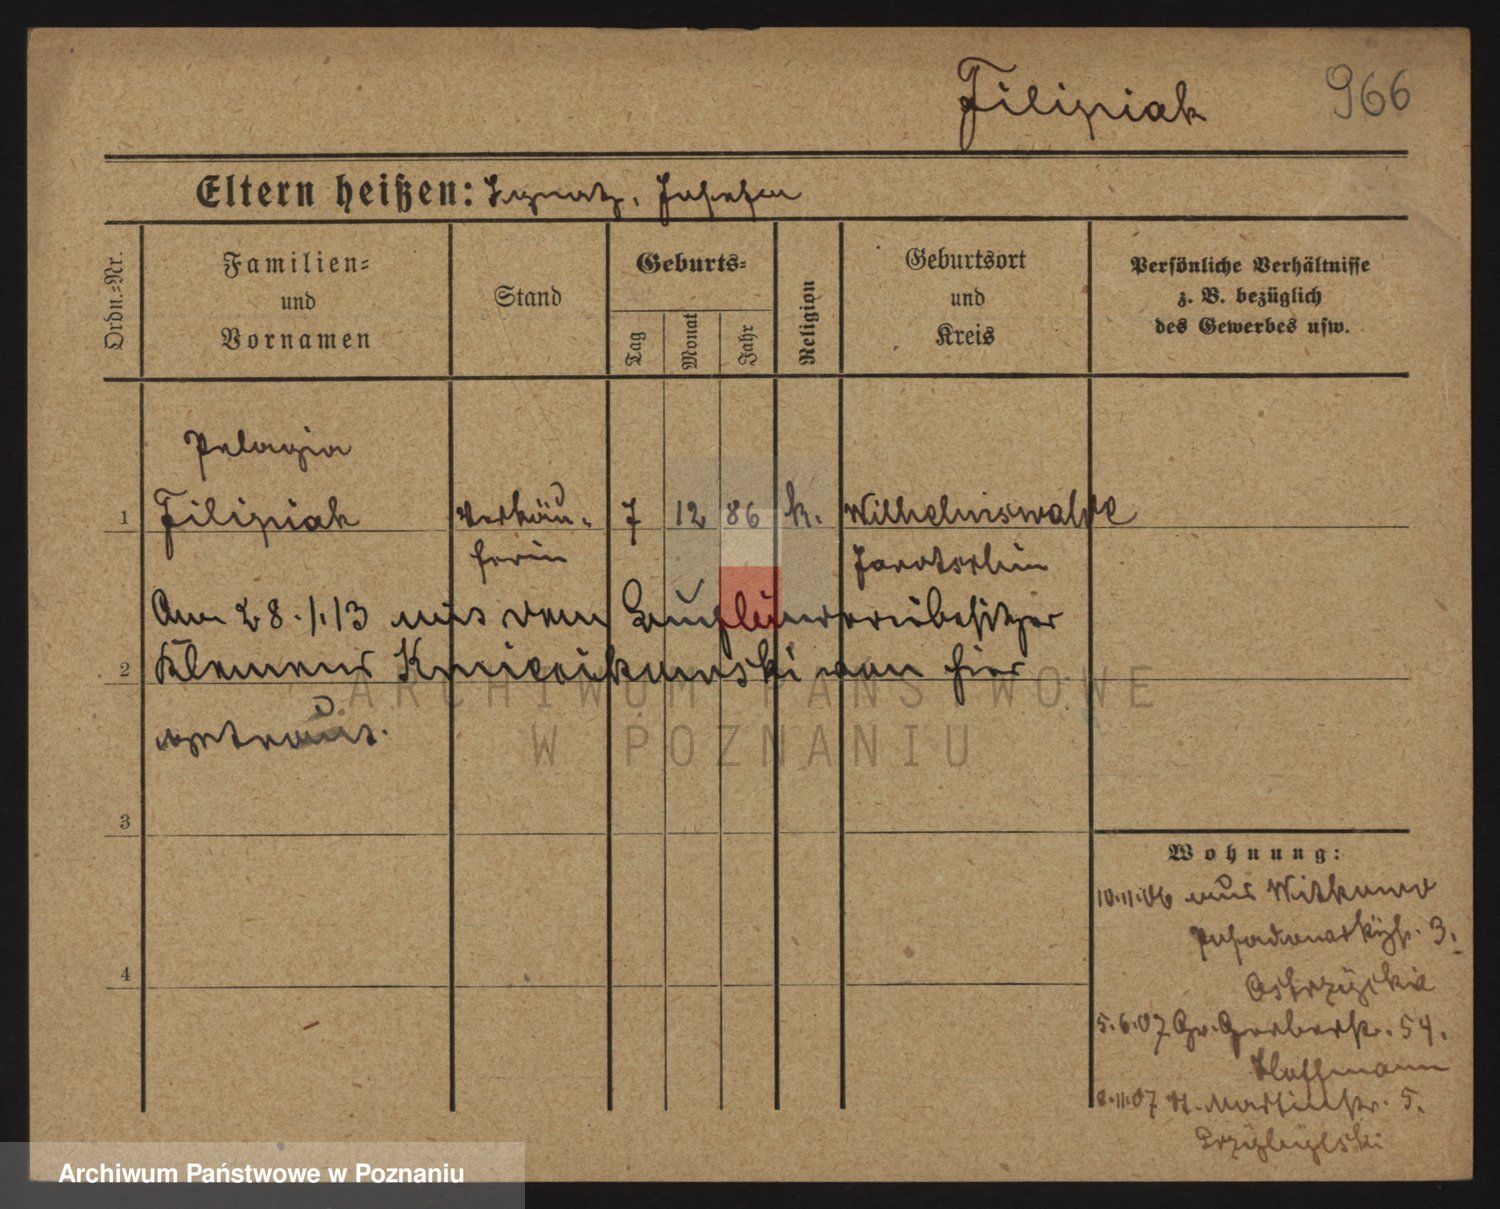 Filipiak 966
Eltern heißen: Ignatz, Josefa
Ordn.-Nr.
Familien-
und
Vornamen
Stand
Geburts-
Tag
Monat
Jahr
Religion
Geburtsort
und
Kreis
Persönliche Verhältnisse
z. B. bezüglich
des Gewerbes usw.
Pelagia
1 Filipiak Verkäu- 7 12 86 k. Wilhelmswalde
ferin Jarotschin
Am 28.1.13 mit dem besitzer
2 Klemens von hier
getraut.
3
4
Wohnung:
10.11.06 aus Witkowo
Posadowskystr. 3.
Ostrzycki
5.6.07 Gr. Gerberstr. 54.
Hoffmann
8.11.07 St. Martinstr. 5.
Przybylski
ARCHIWUM PAŃSTWOWE
W POZNANIU
Archiwum Państwowe w Poznaniu